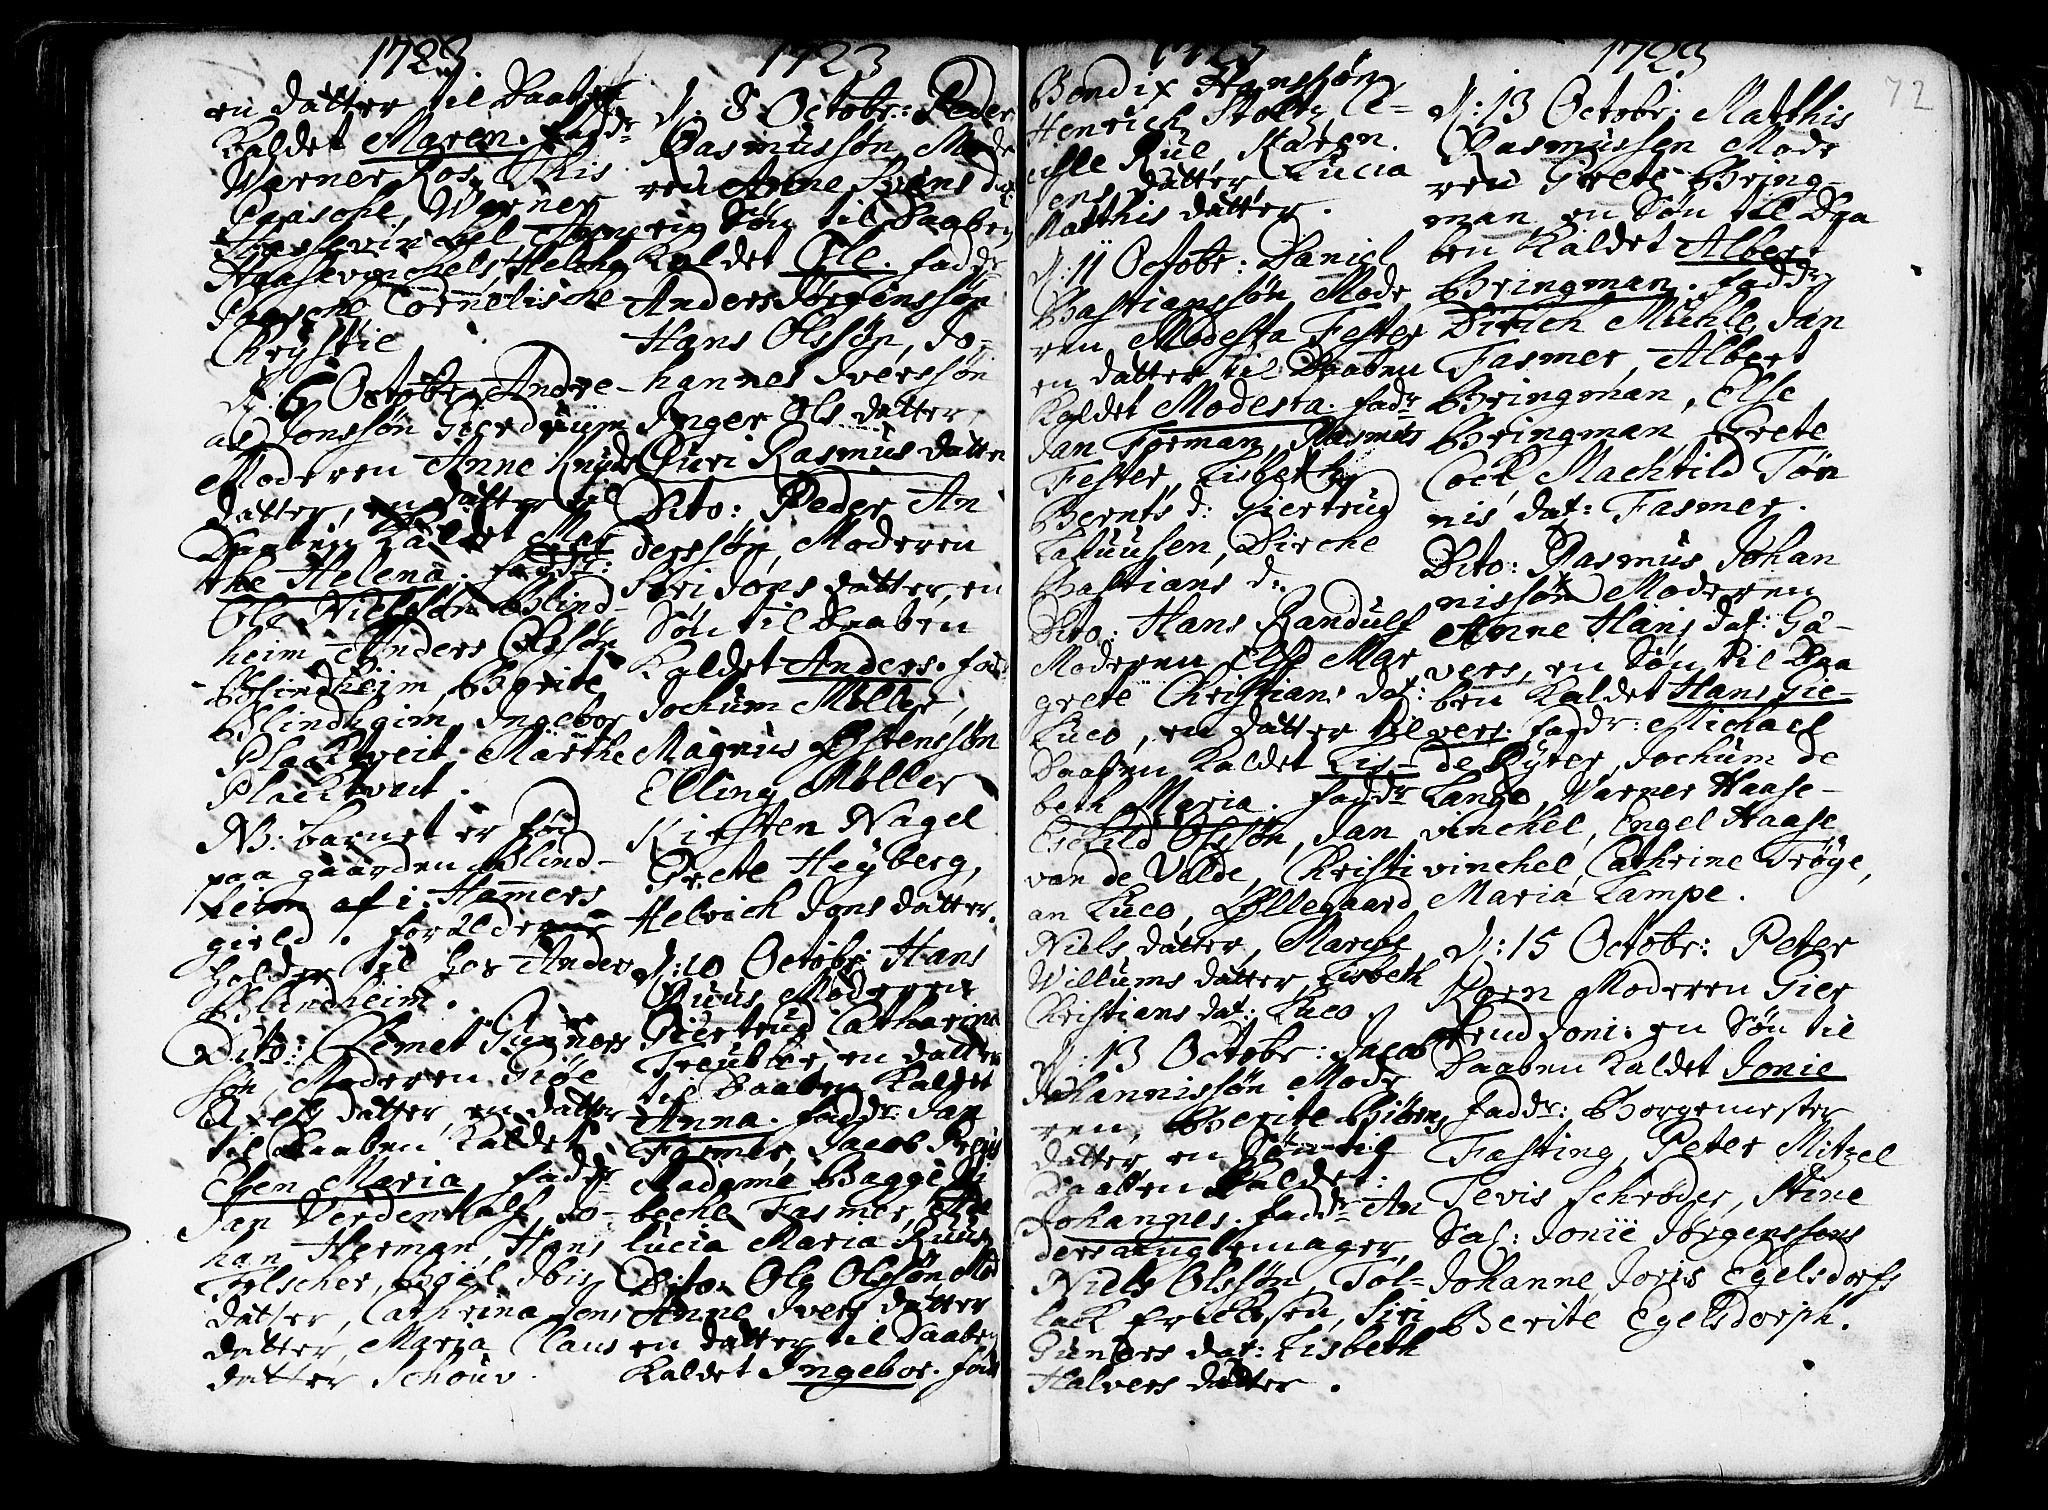 1723
en datter til Daaben
Kaldet Maren. faddr
Warner Ros, This
Paasche, Werner
Haasevinckel, Anne
Haasevinchels, Helena
Paasche Cornelische
Chrystie
d: 6 Octobr: Andre-
as Jonssøn Gierdrum
Moderen Anne Knuds
datter, en datter til
Daaben Kaldet Mar
the Helena. faddr:
Ole Nielssøn Blind-
heim Anders Olssøn
Blindheim, Berite
Blindheim, Ingebor
Placktveit, Marthe
Placktveit.
NB: barnet er fød
paa gaarden Blind-
heim af i Hamers
gield. forældrene
holder til hos Anders
Blindheim.
Dito: Clemet Gunners
søn, Moderen Giøe
datter, en datter
til Daaben Kaldet
Elen Maria. faddr
Jan Verdenhalf, Jo-
han Herman, Hans
Tolscher, Bøel Ibis
datter, Cathrina Jens
datter, Maria Claus
datter Schouv.
1723
d: 8 Octobr: Peder
Rasmussøn Mode
ren Anne Ivens dat:
en Søn til Daaben
Kaldet Ole. faddr
Anders Jørgenssøn
Hans Olssøn, Jo-
hannes Iverssøn
Inger Ols datter,
Guri Rasmus datter
Dito: Peder An
derssøn, Moderen
Siri Jons datter, en
Søn til Daaben
Kaldet Anders. fadr:
Jochum Møller,
Magnus Østenssøn
Elling Møller
Kirsten Nagel
Grete Heyberg,
Helvich Jons datter.
d: 10 Octobr: Hans
Ruus Moderen
Giertrud Catharina
Treubler, en datter
til Daaben Kaldet
Anna. faddr: Jan
Fasmer, Jacob Kreÿs
Madame Bagge, Li
beche Fasmer,
lucia Maria Ruus
Dito: Ole Olssøn Mod
Anne Ivers datter
en datter til Daaben
Kaldet Ingebor. fadr
1723
Bendix Hanssøn,
Henrich Stoltz, Ce-
cille Rue, Karen
Jens datter Lucia
Matthis datter.
d: 11 Octobr: Daniel
Bastianssøn Mode
ren Modesta Fester
en datter til Daaben
Kaldet Modesta. fadr
Jan Forman, Rasmus
Fester, Lisbeth
Bernts d: Giertrud
Lasuusen, Dirche
Bastians d:
Dito: Hans Randulf
Moderen Else Mar
grete Christians dat:
Luco, en datter til
Daaben Kaldet Lis-
beth Maria. faddr
Eschild Olssøn, Jan
van de Velde, Christi
an Luco, Øllegaard
Niels datter, Marche
Willums datter, Lisbeth
Christians dat: Luco.
d: 13 Octobr: Jacob
Johannissøn Mode
ren, Berite Biørns
datter, en Søn til
Daaben Kaldet:
Johannes. faddr An
ders Buglemager,
Niels Olssøn, Tol-
lack Ericksen, Siri
Gunders dat: Lisbeth
Halvers datter.
1723
72
d: 13 Octobr: Matthis
Rasmussen Mode
ren Grete Bring-
man en Søn til Daa
ben Kaldet Albert
Bringman. faddr
Dirich Muhle, Jan
Fasmer, Albert
Bringman, Else
Bringman, Grete
Cock, Machtild Tøn
nis dat: Fasmer.
Dito: Rasmus Johan
nissøn Moderen
Anne Hans dat: Gæ-
vers, en Søn til Daa
ben Kaldet Hans Gie-
vers. faddr: Michael
de Ryter, Jochum de
Lange, Warner Haase-
vinchel, Engel Haase
vinchel, Cathrine Trøye,
Maria Lampe.
d: 15 Octobr: Peter
Korn Moderen Gier
trud Joni: en Søn til
Daaben Kaldet Jonie
faddr: Borgemester
Fasting, Peter Mitzel
Tevis Schrøder, Stine
Sal: Jonie Jørgenssøns
Johanne Joris Egelsdorfs
Berite Egelsdorph.